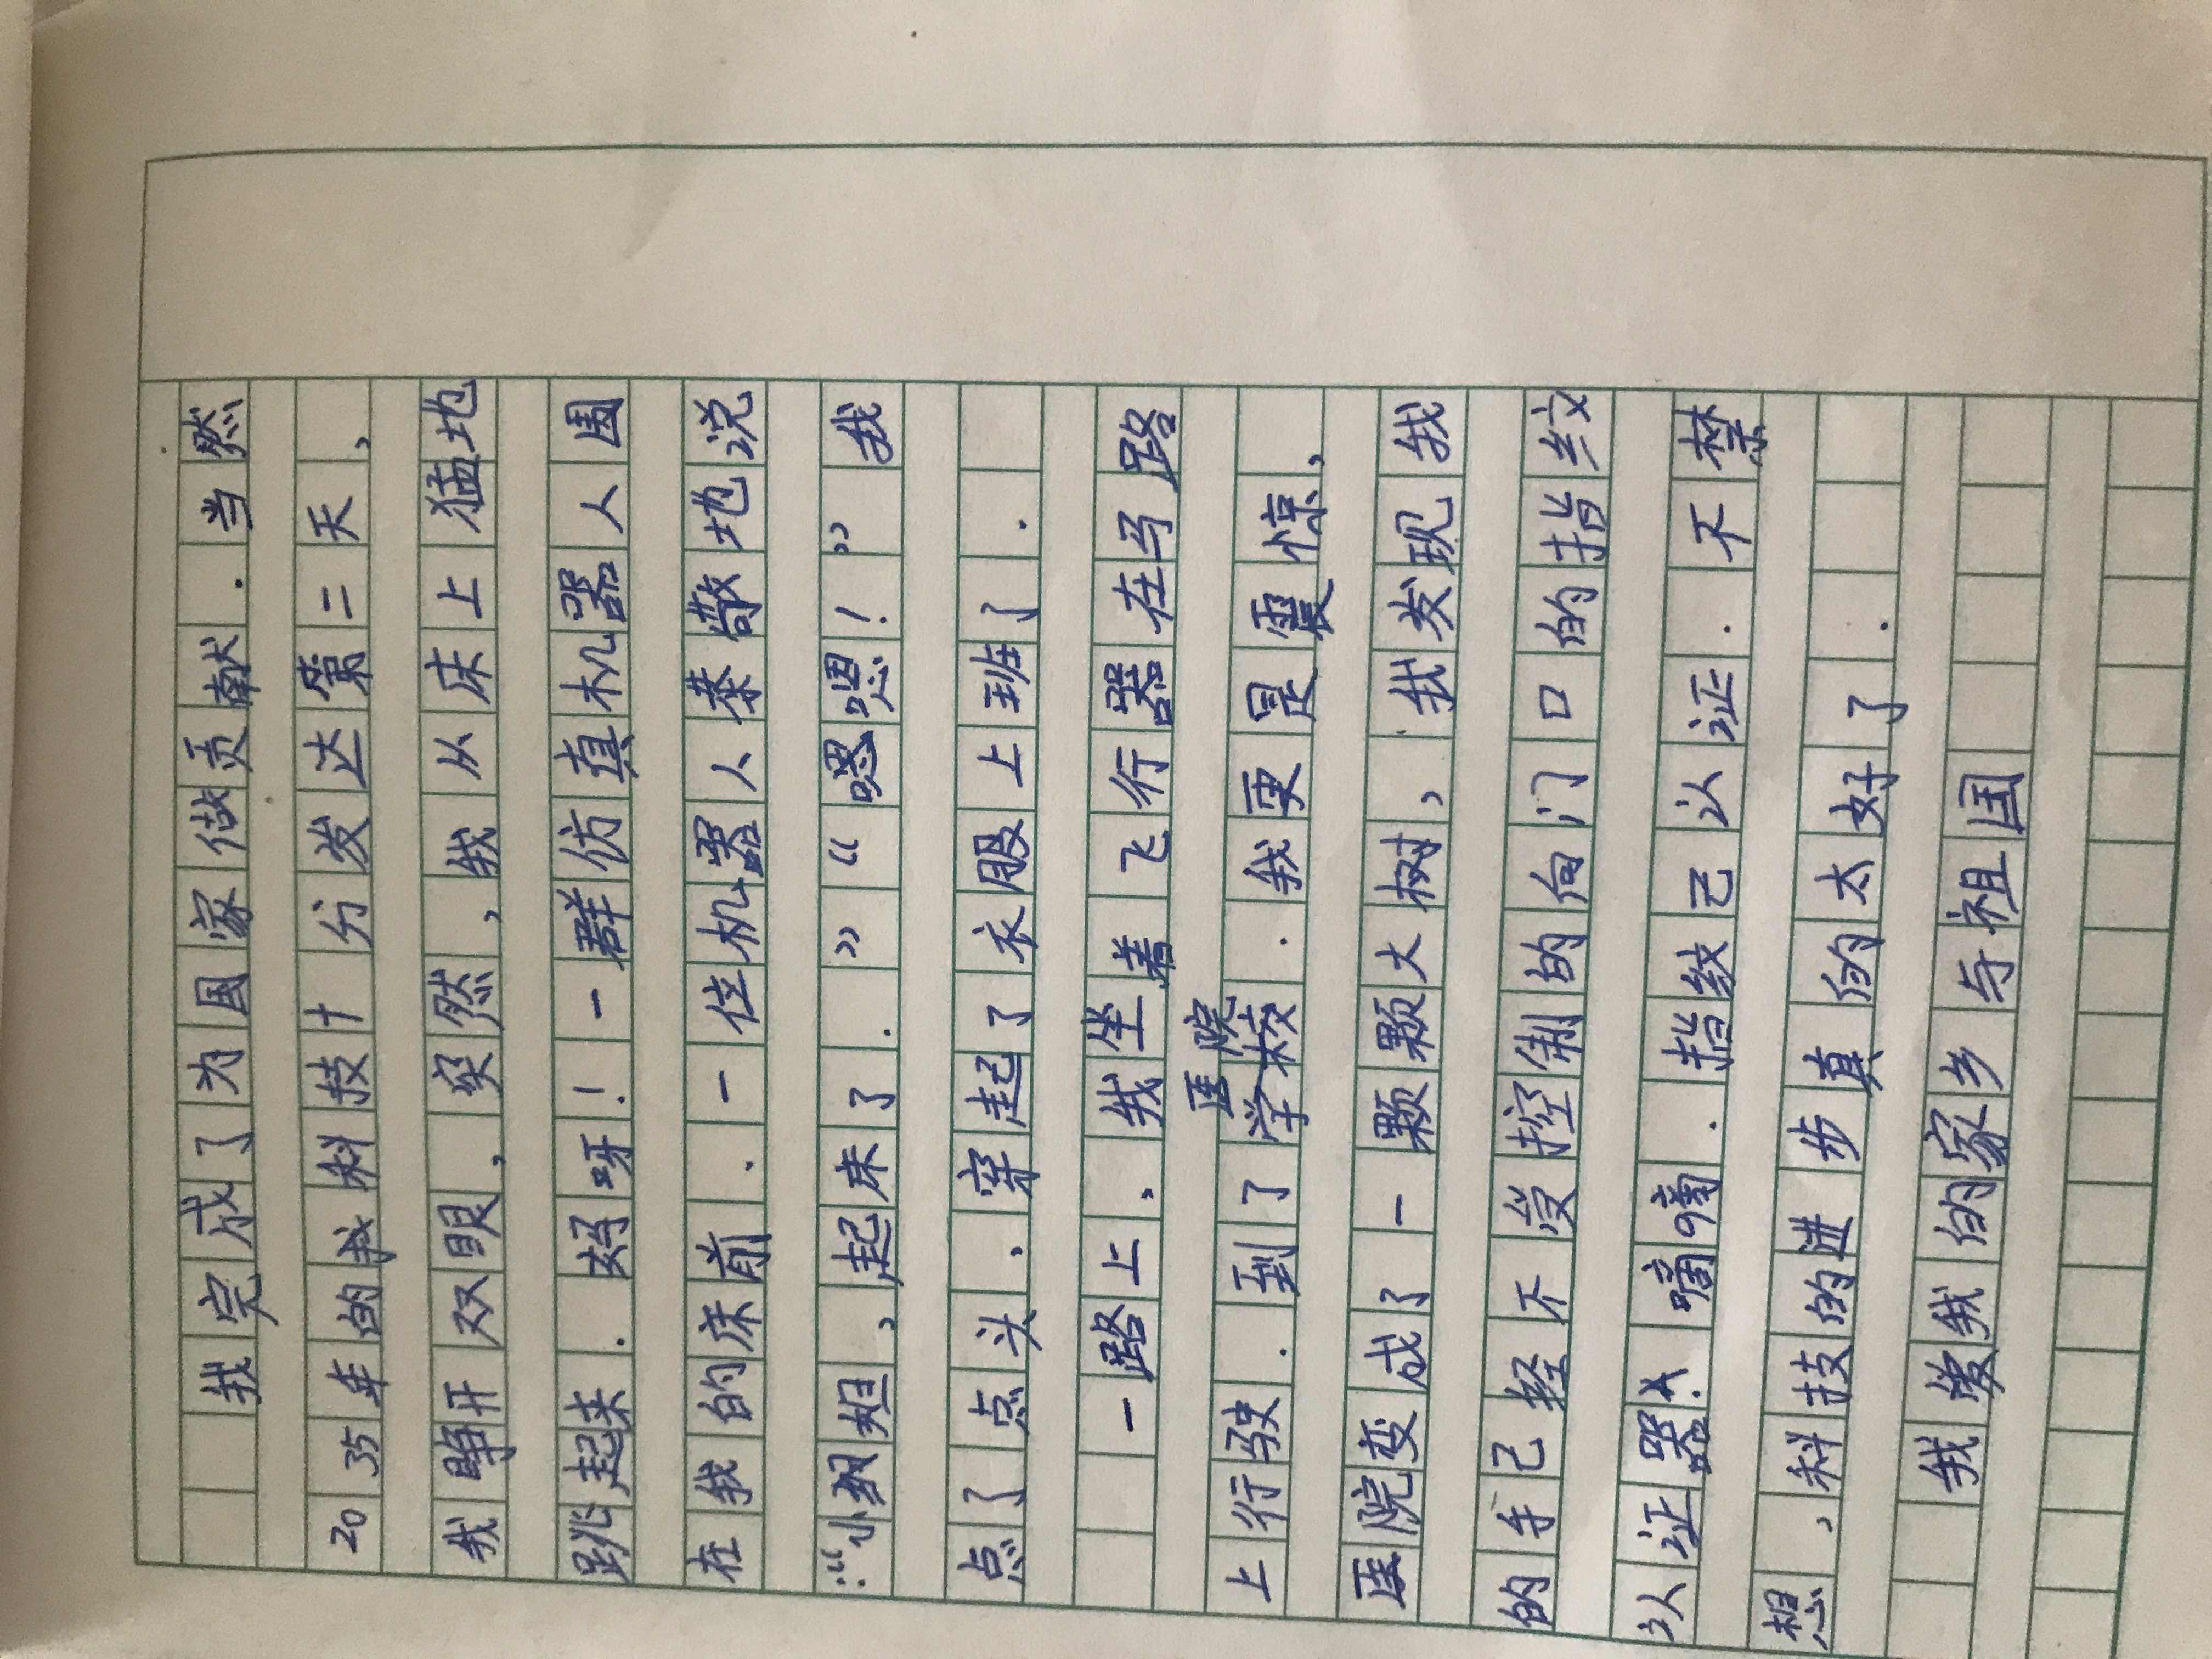 我完成了为国家做贡献.当然
2035年的我科技十分发达第二天,
我睁开双眼,突然,我从床上猛地
跳起来.好呀!一群仿真机器人围
在我的床前.一位机器人恭敬地说
:“小姐,起床了.”“嗯嗯!”我
点了点头,穿起了衣服上班了.
一路上,我坐着飞行器在马路
上行驶.到了医院.我更是震惊,
医院变成了一颗颗大树,我发现我
的手已经不受控制的向门口的指纹
认证器.嘀嘀.指纹已认证.不禁
想,科技的进步真的太好了.
我爱我的家乡与祖国